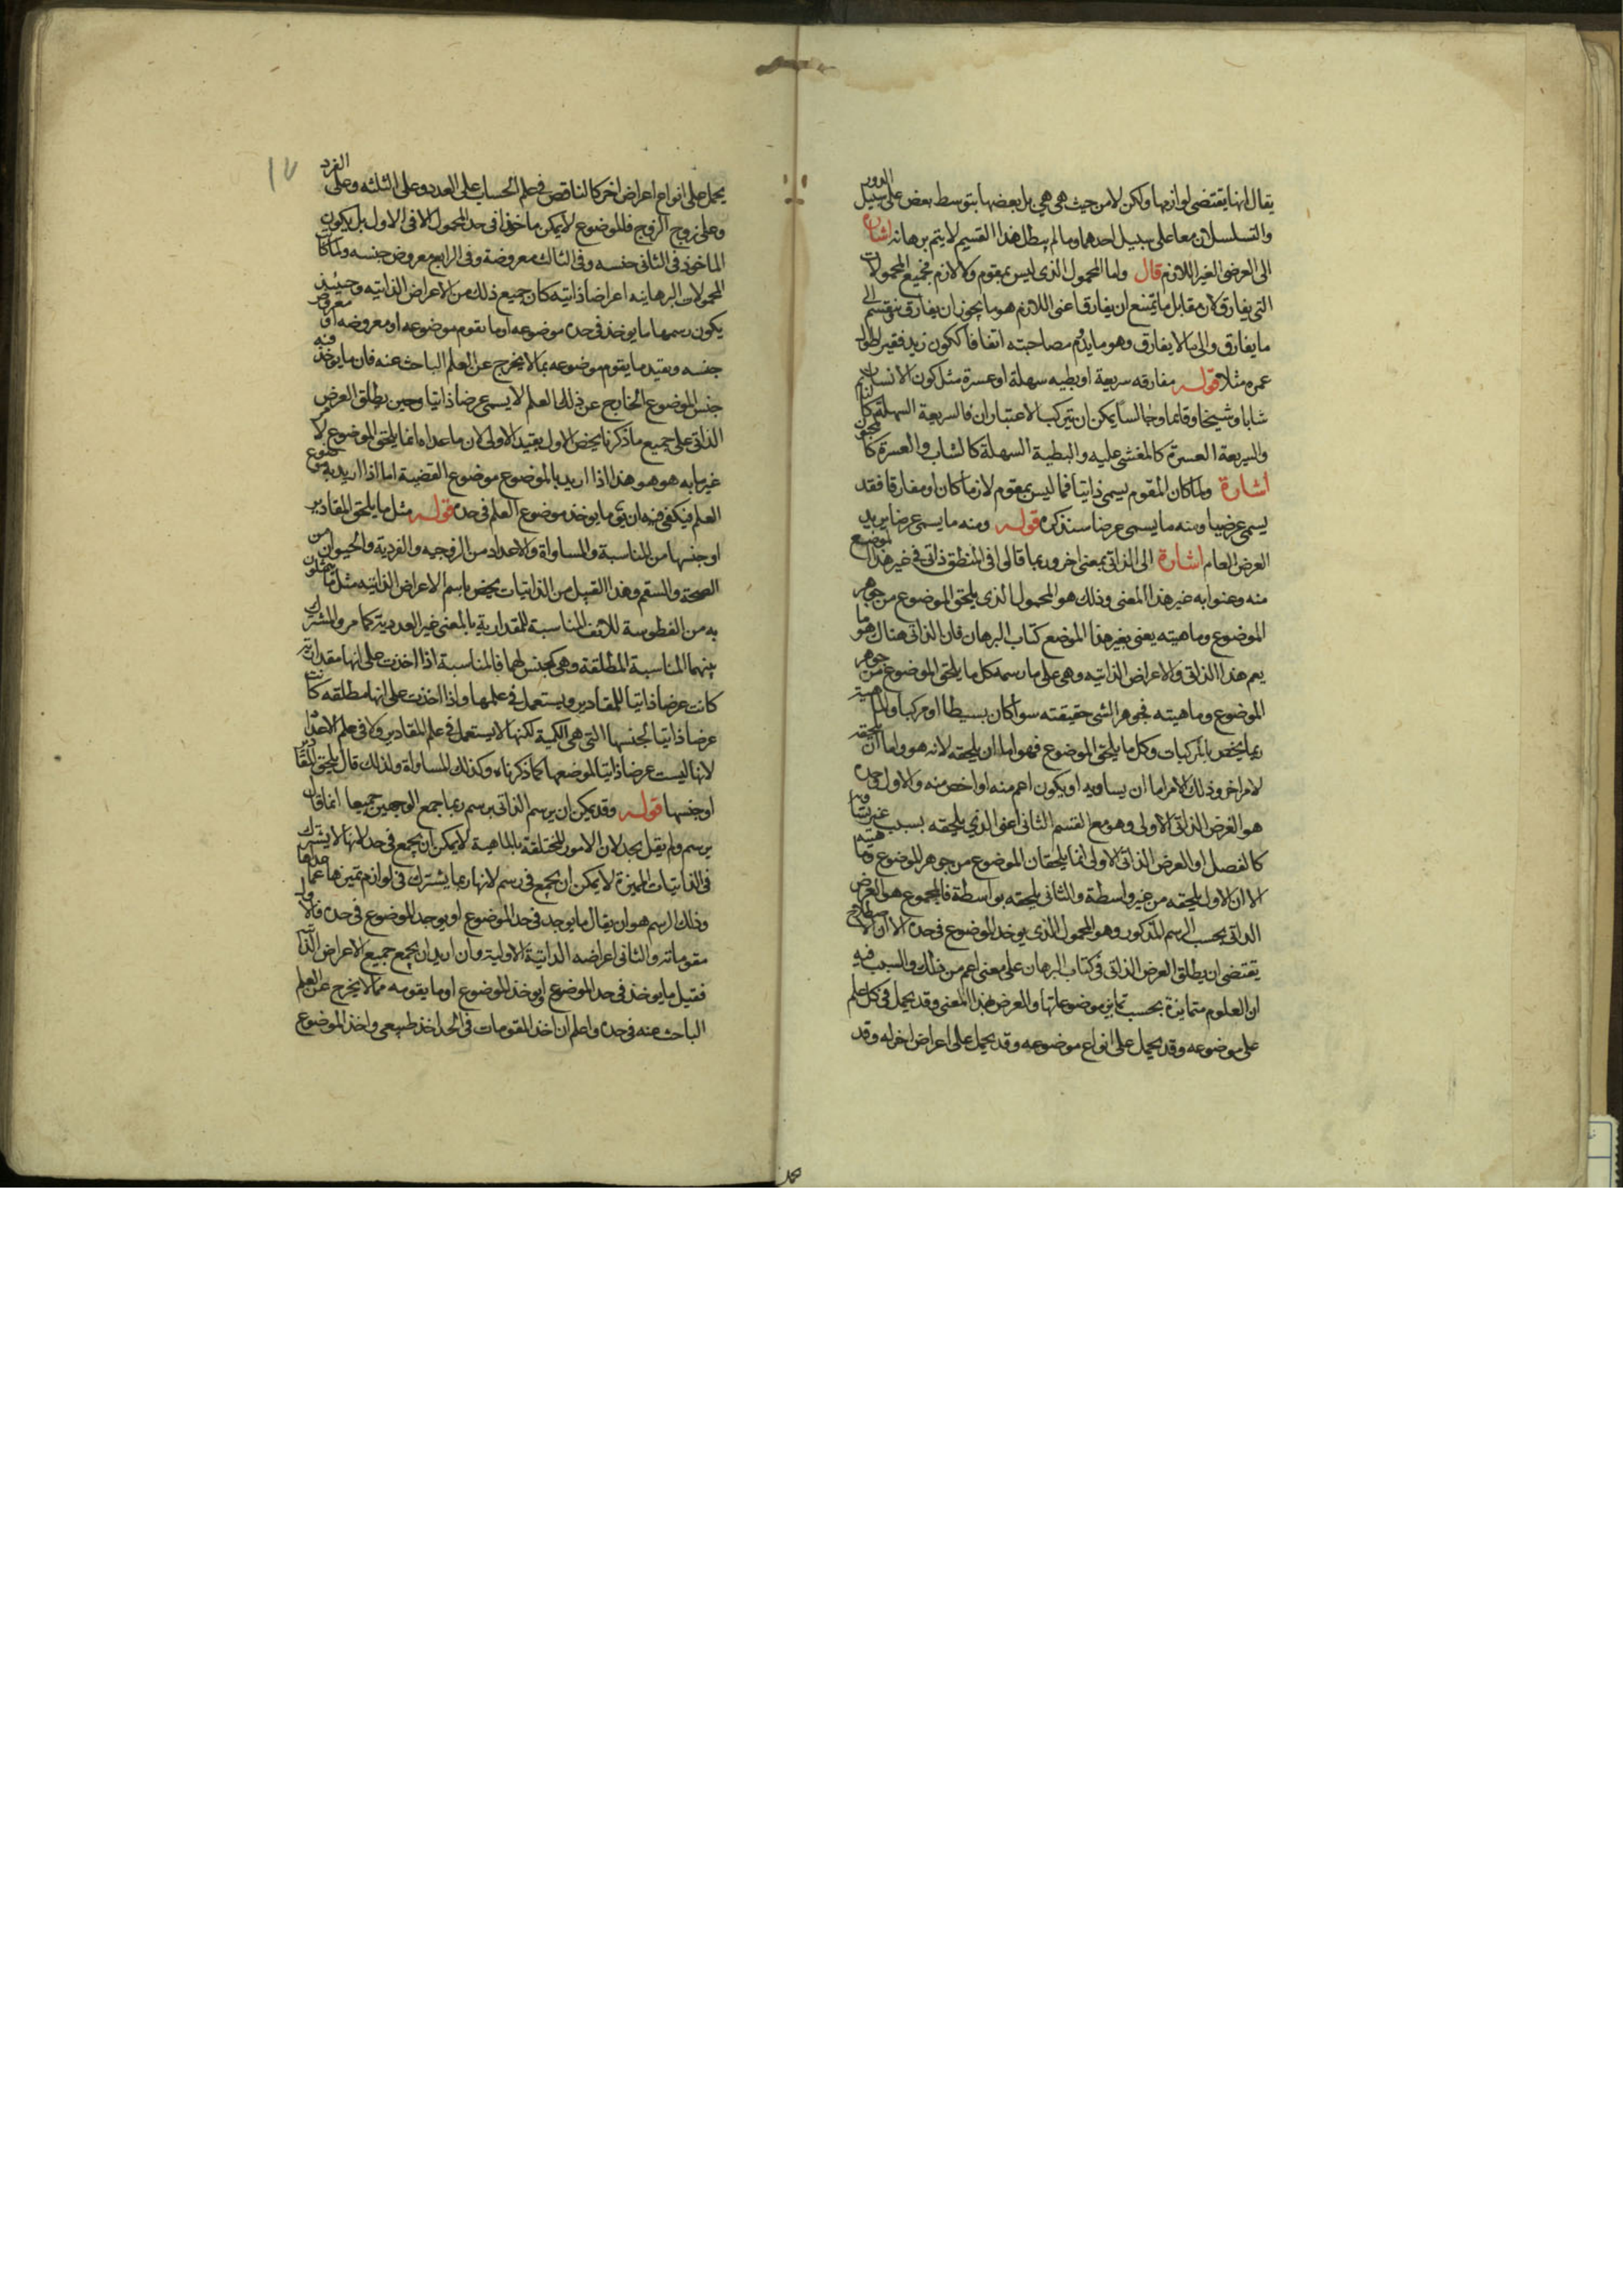 يقال انها يقتضى لوازمها ولكن لا من حيث هى هى بل بعضها بتوسط بعض على سبيل الدور
والتسلسل ان معا على سبيل احدهما وما لم يبطل هذا القسيم لا يتم برهانه اشارة
الى العرضى الغير اللازم قال واما المحمول الذى ليس بمقوم ولا لازم فجميع المحمولات
التى يفارق لان مقابل ما يمتنع ان يفارق اعنى اللازم هو ما يجوز ان يفارق وينقسم الى
ما يفارق والى ما لا يفارق وهو ما يدوم مصاحبته اتفاقا ككون زيد فقيرا طول
عمره مثلا قوله مفارقه سريعة او بطيه سهلة او عسرة مثل كون الانسان
شابا وشيخا وقائما وجالسا يمكن ان يتركب الاعتباران فالسريعة السهلة كالقائم
والسريعة العسرة كالمغشى عليه والبطية السهلة كالشاب والعسرة كا
اشارة ولما كان المقوم يسمى ذاتيا فما ليس بمقوم لازما كان او مفارقا فقد
يسمى عرضيا ومنه ما يسمى عرضا سنذكره قوله ومنه ما يسمى عرضا يريد
العرض العام اشارة الى الذاتى بمعنى اخر وربما قالوا فى المنطق ذاتى فى غير هذا الموضع
منه وعنوا به غير هذا المعنى وذلك هو المحمول الذى يلحق الموضوع من جوهر
الموضوع وماهيته يعنى بغير هذا الموضع كتاب البرهان فان الذاتى هناك هو ما
يعم هذا الذاتى والاعراض الذاتيه وهى على ما رسمه كل ما يلحق الموضوع من جوهر
الموضوع وماهيته فجوهر الشى حقيقته سواء كان بسيطا او مركبا والماهية
ربما يختص بالمركبات وكل ما يلحق الموضوع فهو اما ان يلحقه لانه هو واما ان يلحقه
لامر اخر وذلك الامر اما ان يساويه او يكون اعم منه او اخص منه والاول وحده
هو العرض الذاتى الاولى وهو مع القسم الثانى اعنى الذى يلحقه بسبب غيره يساويه
كالفصل او العرض الذاتى الاولى انما يلحقان الموضوع من جوهر الموضوع وماهيته
الا ان الاول يلحقه من غير واسطة والثانى يلحقه بواسطة فالمجموع هو العرض
الذاتى بحسب الرسم المذكور وهو المحمول الذى يوخذ الموضوع فى حده الا ان الاصطلاح
يقتضى ان يطلق العرض الذاتى فى كتاب البرهان على معنى اعم من ذلك والسبب فيه
ان العلوم متمايزة بحسب تمايز موضوعاتها والعرض بهذا المعنى وقد يحمل فى كل علم
على موضوعه وقد يحمل على انواع موضوعه وقد يحمل على اعراض اخر له وقد
١٧
يحمل على انواع اعراض اخر كالناقص فى علم الحساب على العدد وعلى الثلثه وعلى الفرد
وعلى زوج الزوج فالموضوع لا يمكن ماخوذا فى حد المحمول الا فى الاول بل يكون
الماخوذ فى الثانى جنسه وفى الثالث معروضة وفى الرابع معروض جنسه ولما كان
المحمولات البرهانيه اعراضا ذاتيه كان جميع ذلك من الاعراض الذاتيه وحينئذ
يكون رسمها ما يوخذ فى حده موضوعه او ما يقوم موضوعه او معروضه او معروض
جنسه ويقيد ما يقوم موضوعه بما لا يخرج عن العلم الباحث عنه فان ما يوخذ فيه
جنس الموضوع الخارج عن ذلك العلم لا يسمى عرضا ذاتيا وحين يطلق العرض
الذاتى على جميع ما ذكرنا يخص الاول بقيد الاولى لان ما عداه انما يلحق الموضوع لا
غير ما به هو هو هذا اذا اريد بالموضوع موضوع القضية اما اذا اريد به موضوع
العلم فيكفى فيه ان يق ما يوخذ موضوع العلم فى حده قوله مثل ما يلحق المقادير
او جنسها من المناسبة والمساواة والاعداد من الزوجيه والفردية والحيوان من
الصحة والسقم وهذا القبيل من الذاتيات يخص باسم الاعراض الذاتيه مثل ما يمثلون
به من الفطوسة للانف المناسبة المقدارية بالمعنى غير العددية كما مر والمشترك
بينهما المناسبة المطلقة وهى كجنس لهما فالمناسبة اذا اخذت على انها مقدارية
كانت عرضا ذاتيا للمقادير ويستعمل فى علمها واذا اخذت على انها مطلقه كانت
عرضا ذاتيا لجنسها التى هى الكمية لكنها لا يستعمل فى علم المقادير ولا فى علم الاعداد
لانها ليست عرضا ذاتيا لموضعها كما ذكرناه وكذلك المساواة ولذلك قال يلحق المقادير
او جنسها قوله وقد يمكن ان يرسم الذاتى برسم ربما جمع الوجهين جميعا انما قال
يرسم ولم يقل يحد لان الامور المختلفة بالماهية لا يمكن ان يجمع فى حد لانها لا يشترك
فى الذاتيات المميزة لا يمكن ان يجمع فى رسم لانها ربما يشترك فى لوازم تميزها عما عداها
وذلك الرسم هو ان يقال ما يوجد فى حد الموضوع او يوجد الموضوع فى حده فالاول
مقوماته والثانى اعراضه الذاتية الاولية وان اريد ان يجمع جميع الاعراض الذاتية
فقيل ما يوخذ فى حد الموضوع او يوخذ الموضوع او ما يقومه مما لا يخرج عن العلم
الباحث عنه فى حده واعلم ان اخذ المقومات فى الحد اخذ طبيعى واخذ الموضوع